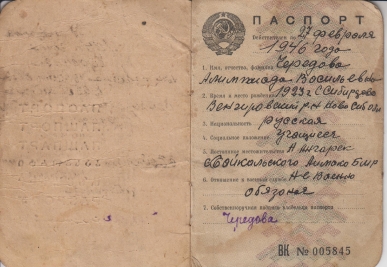 ПАСПОРТ
Действителен по 27 февраля
1946 года
1. Имя, отчество, фамилия Чередова
Алимпиада Васильевна
2. Время и место рождения 1923 г. С Сибирцево
Венгировский р-н Ново Сиб обл
3. Национальность русская
4. Социальное положение учащиеся
5. Постоянное местожительство п. Ангарск
Байкальского
6. Отношение к военной службе Не Военно
обязаная
7. Собственноручная подпись владельца паспорта
Чередова
ВК № 005845